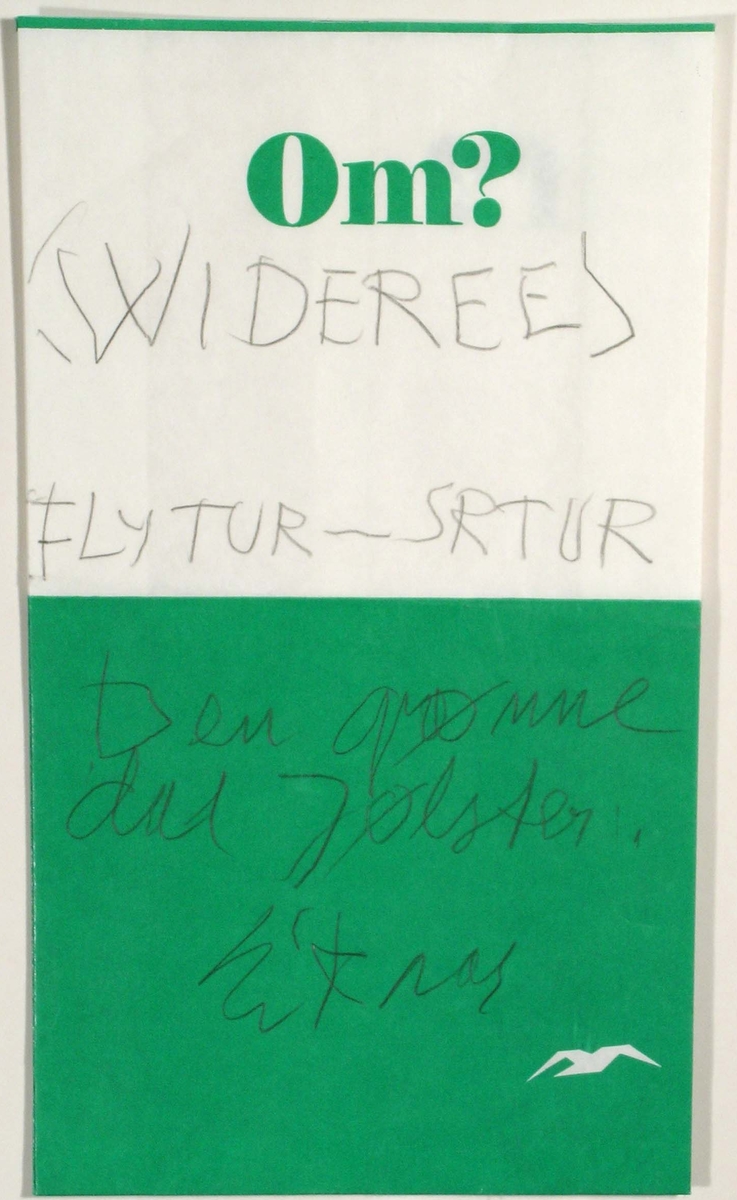 Om?
(WIDEREE)
FLYTUR — SRTUR
Den grønne
dal Jølster.